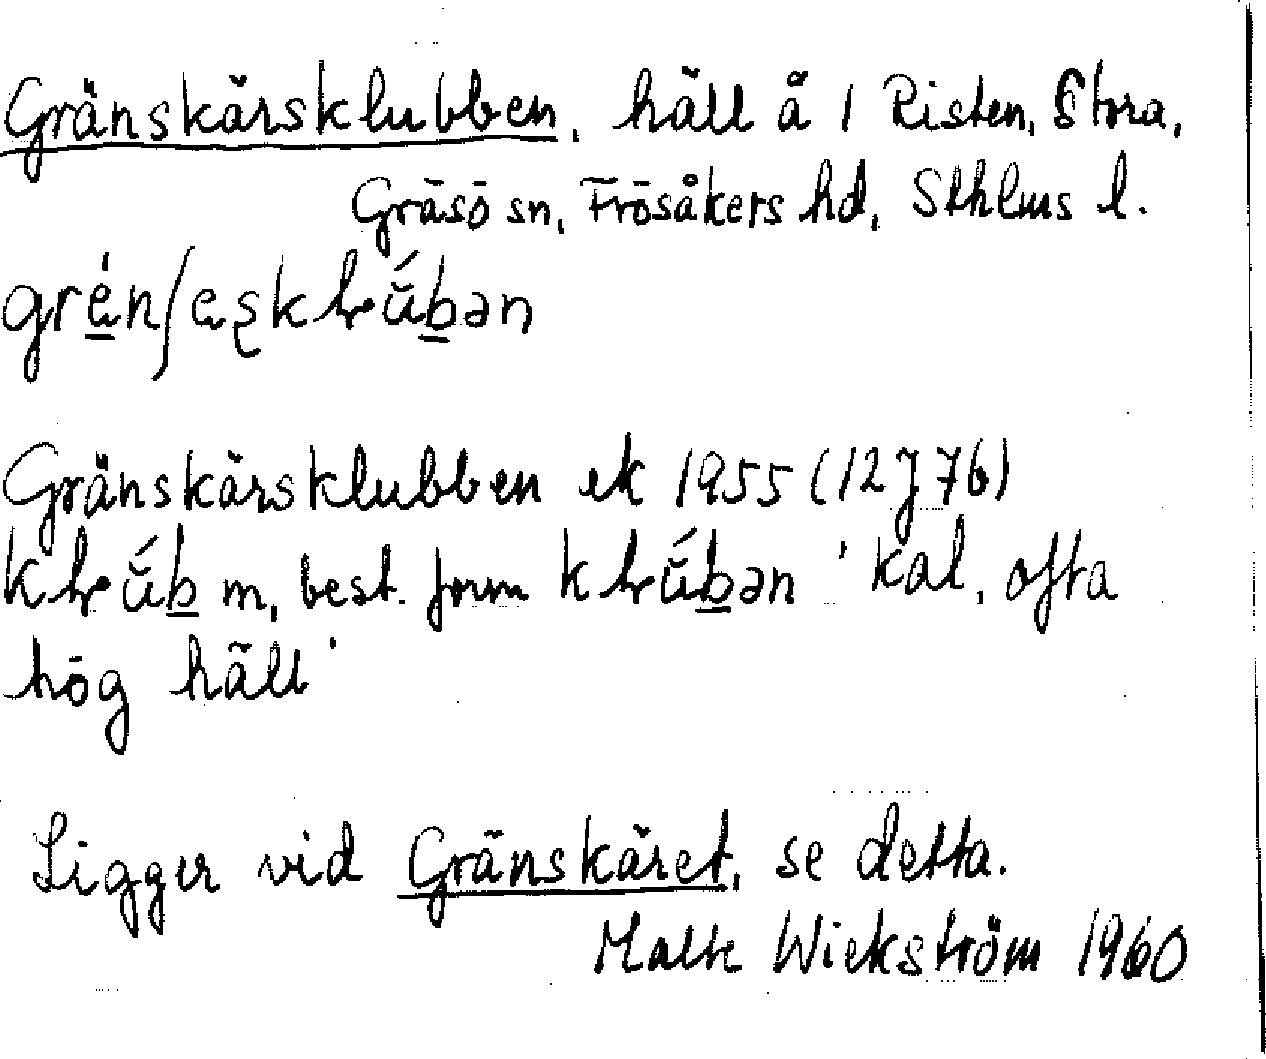 Gränskärsklubben, häll å 1 Risten, Stora,
Gräsö sn, Frösåkers hd, Sthlms l.
Gränskärsklubben ek 1955 (12J7b)
m, best. form 'kal, ofta
hög häll'
Ligger vid Gränskäret, se detta.
Malte Wickström 1960